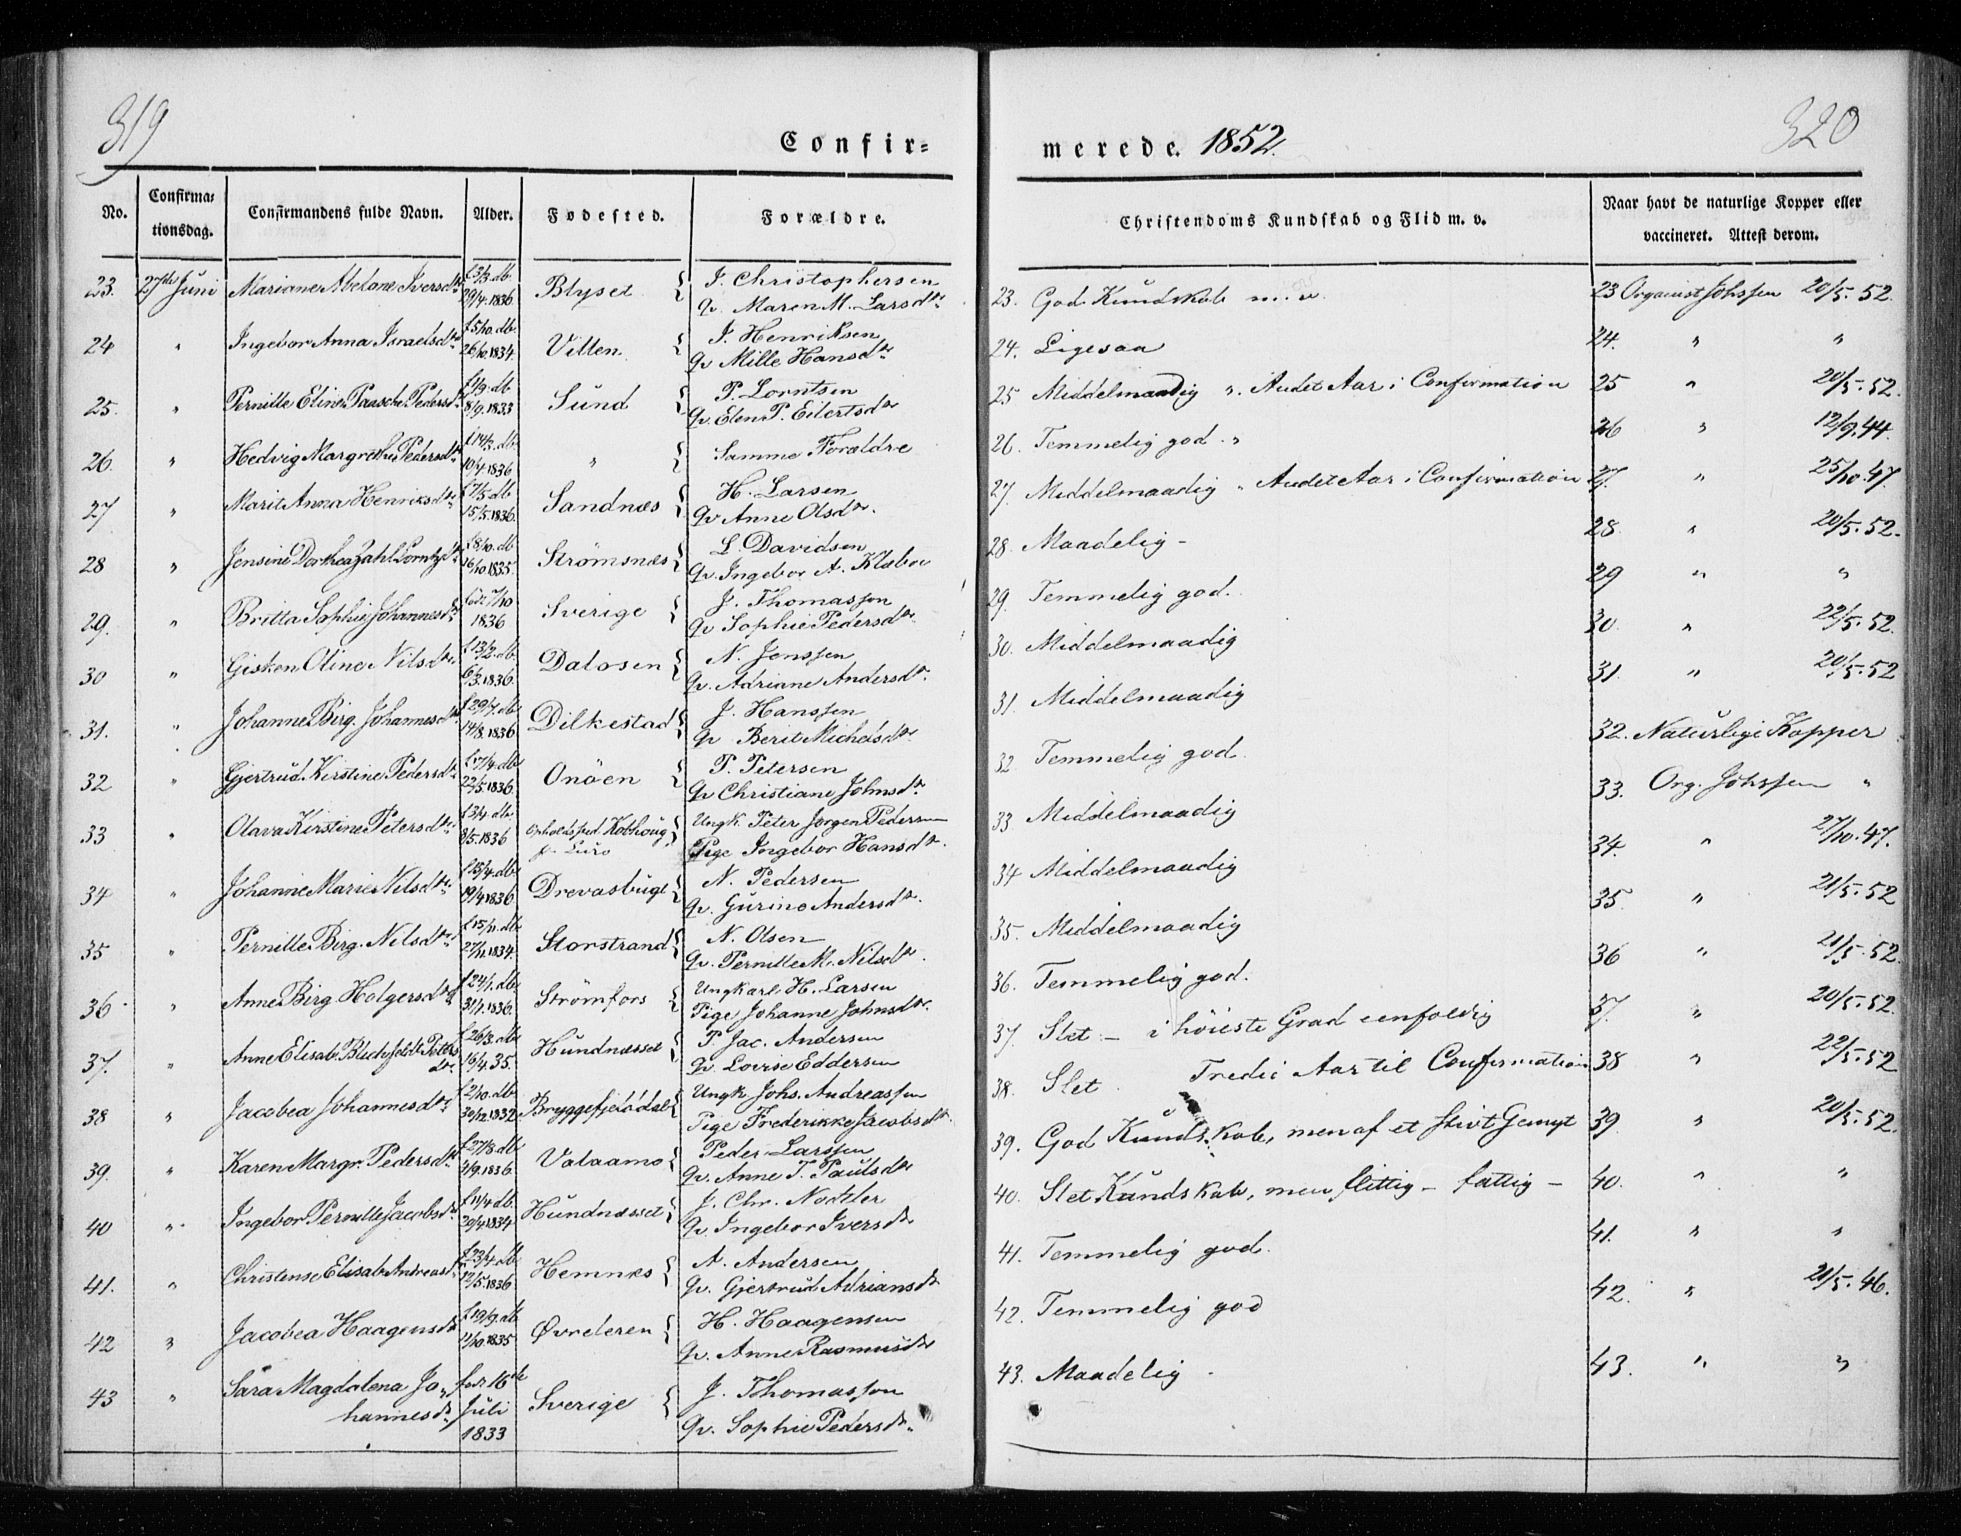 319
Confir=
No.
Confirma=
tionsdag.
Confirmandens fulde Navn.
Alder.
Fødested.
Forældre.
23. 27de Juni Mariane Abelone Iversdtr f. 3/3. db. 29/4. 1836 Blyset { I. Christophersen
Qv. Maren M. Larsdtr
24 " Ingebor Anna Israelsdtr f. 5/10. db. 26/10. 1834. Villen { I. Henriksen
Qv Mille Hansdtr
25. " Pernille Eline Paasche Pedersdtr f. 1/9. db 8/9. 1833 Sund { P. Lorntsen
Qv. Elen P. Eilertsdtr
26. " Hedvig Margrethe Pedersdtr f. 14/3. db. 10/4. 1836 " { Samme Forældre
27 " Marit Anna Henriksdtr f. 7/5. db 15/5. 1836. Sandnæs { H. Larsen
Qv Anne Olsdtr.
28 " Jensine Dorthea Zahl Lorntzdtr f. 8/10. db 16/10 1835. Strömsnæs { L. Davidsen
Qv. Ingebor A. Klæboe
29. " Britta Sophie Johannesdtr født 7/10 1836 Sverige { J. Thomassen
Qv Sophie Pedersdtr.
30 " Gisken Oline Nilsdtr. f. 13/2. db. 6/3. 1836. Dalosen { N. Jenssen
Qv. Adriane Andersdtr.
31. " Johanne Birg. Johannesdtr f. 29/7. db 14/8. 1836 Dilkestad { J. Hanssen
Qv Berit Michelsdtr
32 " Gjertrud Kirstine Pedersdtr f. 17/4. db 22/5. 1836. Onöen { P. Petersen
Qv Christiane Johnsdtr.
33 " Olava Kirstine Petersdtr. f. 3/4. db. 8/5. 1836 Opholdssted Kobhoug
p. Lurö { Ungk. Peter Jørgen Pedersen
Pige Ingebor Hansdtr.
34 " Johanne Marie Nilsdtr. f. 15/4. db 19/4 1836 Drevasbuge { N. Pedersen
Qv. Gurine Andersdtr.
35 " Pernille Birg. Nilsdtr f. 15/11. db. 27/11. 1834. Storstrand { N. Olsen
Qv. Pernille M. Nilsdtr.
36. " Anne Birg. Holgersdtr f. 24/1. db. 31/1. 1836. Strömfors { Ungkarl H. Larsen
Pige Johanne Johnsdtr.
37. " Anne Elisab. Petersdtr. f. 26/3. db 16/4. 35. Hundnæsset { P. Jac. Andersen
Qv. Lovise Eddersen
38 " Jacobea Johannesdtr f. 2/10. db 30/12. 1832. Bryggefjelddal { Ungk Johs. Andreassen
Pige Frederikke Jacobsdtr.
39. " Karen Margr. Pedersdtr f. 27/8. db 4/9. 1836. Valaamo { Peder Larssen
Qv. Anne T. Paulsdtr
40 " Ingebor Pernille Jacobsdtr f. 11/4 db. 20/4 1834 Hundnæsset { J. Chr. Nodtler
Qv Ingebor Iversdtr
41. " Christense Elisab. Andreasdtr f. 23/4. db 12/5. 1836. Hemnæs { A. Andersen
Qv. Gjertrud Adriansdtr
42 " Jacobea Haagensdtr f. 19/9. db 11/10. 1835 Øvrderen { H. Haagensen
Qv. Anne Rasmusdtr
43 " Sara Magdalena Jo=
hannesdtr. født 16de
Juli
1833 Sverige { J. Thomassen
Qv. Sophie Pedersdtr.
merede. 1852.
320
Christendoms Kundskab og Flid m. v.
Naar havt de naturlige Kopper eller
vaccineret. Attest derom.
23. God Kundskab m. v. 23 Organist Johssen 20/5. 52.
24. Ligesaa 24. " "
25 Middelmaadig ". Andet Aar i Confirmation 25 " 20/5. 52.
26. Temmelig god. " 26 " 12/9. 44.
27. Middelmaadig " Andet Aar i Confirmation 27. " 25/10. 47.
28. Maadelig - 28. " 20/5. 52.
29. Temmelig god. 29 " "
30. Middelmaadig 30. " 22/5. 52.
31. Middelmaadig 31. " 20/5. 52
32 Temmelig god. 32. Naturlige Kopper
33 Middelmaadig 33. Org. Johssen "
34 Middelmaadig 34. " 27/10. 47.
35. Middelmaadig 35. " 21/5. 52
36. Temmelig god. 36 " 21/5. 52.
37. Slet - i höieste Grad eenfoldig 37. " 20/5. 52.
38. Slet. Tredie Aar til Confirmation 38 " 22/5. 52
39. God Kundskab, men af et stivt Gemyt 39. " 20/5. 52.
40. Slet Kundskab, men flittig - fattig - 40. " "
41. Temmelig god. 41. " "
42. Temmelig god 42. " 21/5. 46.
43. Maadelig 43. " "